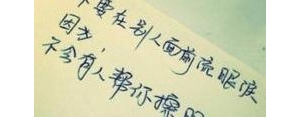 不要在别人面前流眼泪
因为，
不会有人帮你擦